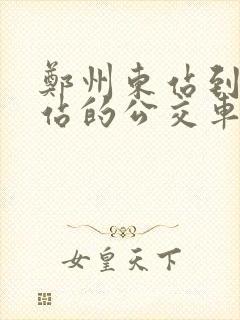 鄭州東佔到
佔的公交車
女皇天下